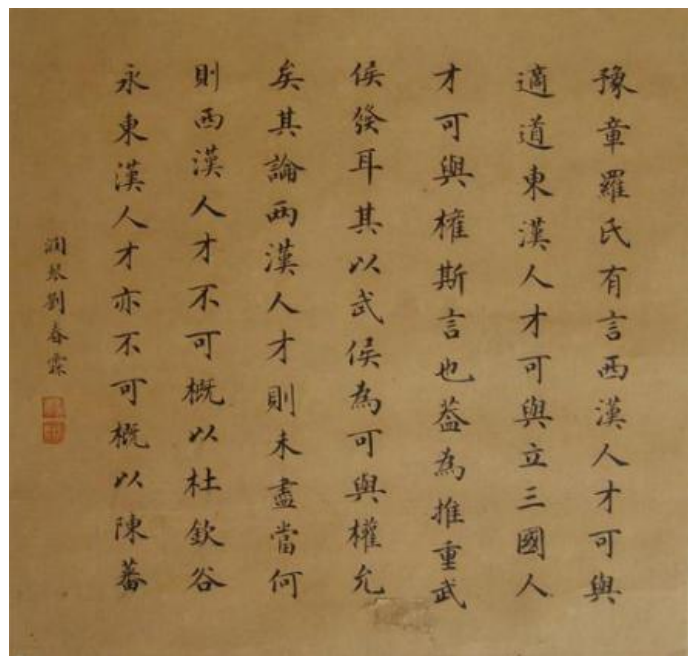 豫章羅氏有言西漢人才可與
適道東漢人才可與立三國人
才可與權斯言也葢為推重武
侯發耳其以武侯為可與權允
矣其論兩漢人才則未盡當何
則西漢人才不可概以杜欽谷
永東漢人才亦不可概以陳蕃
潤琴劉春霖